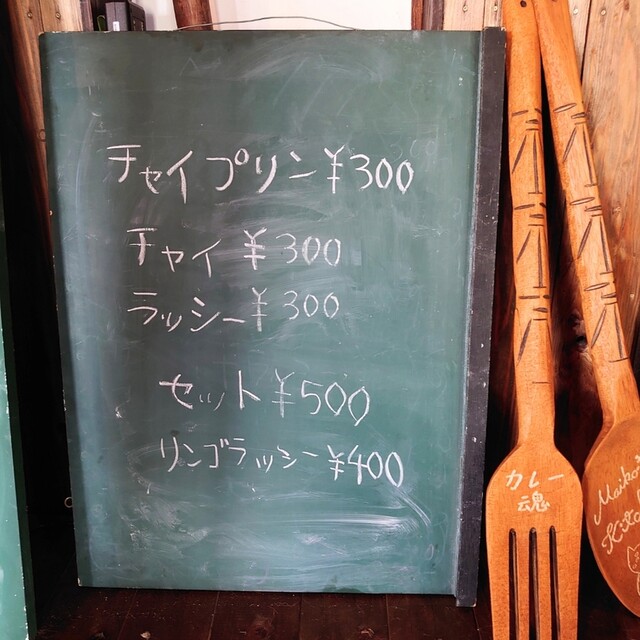 チャイプリン¥300
チャイ¥300
ラッシー¥300
セット¥500
リンゴラッシー¥400
カレー
魂